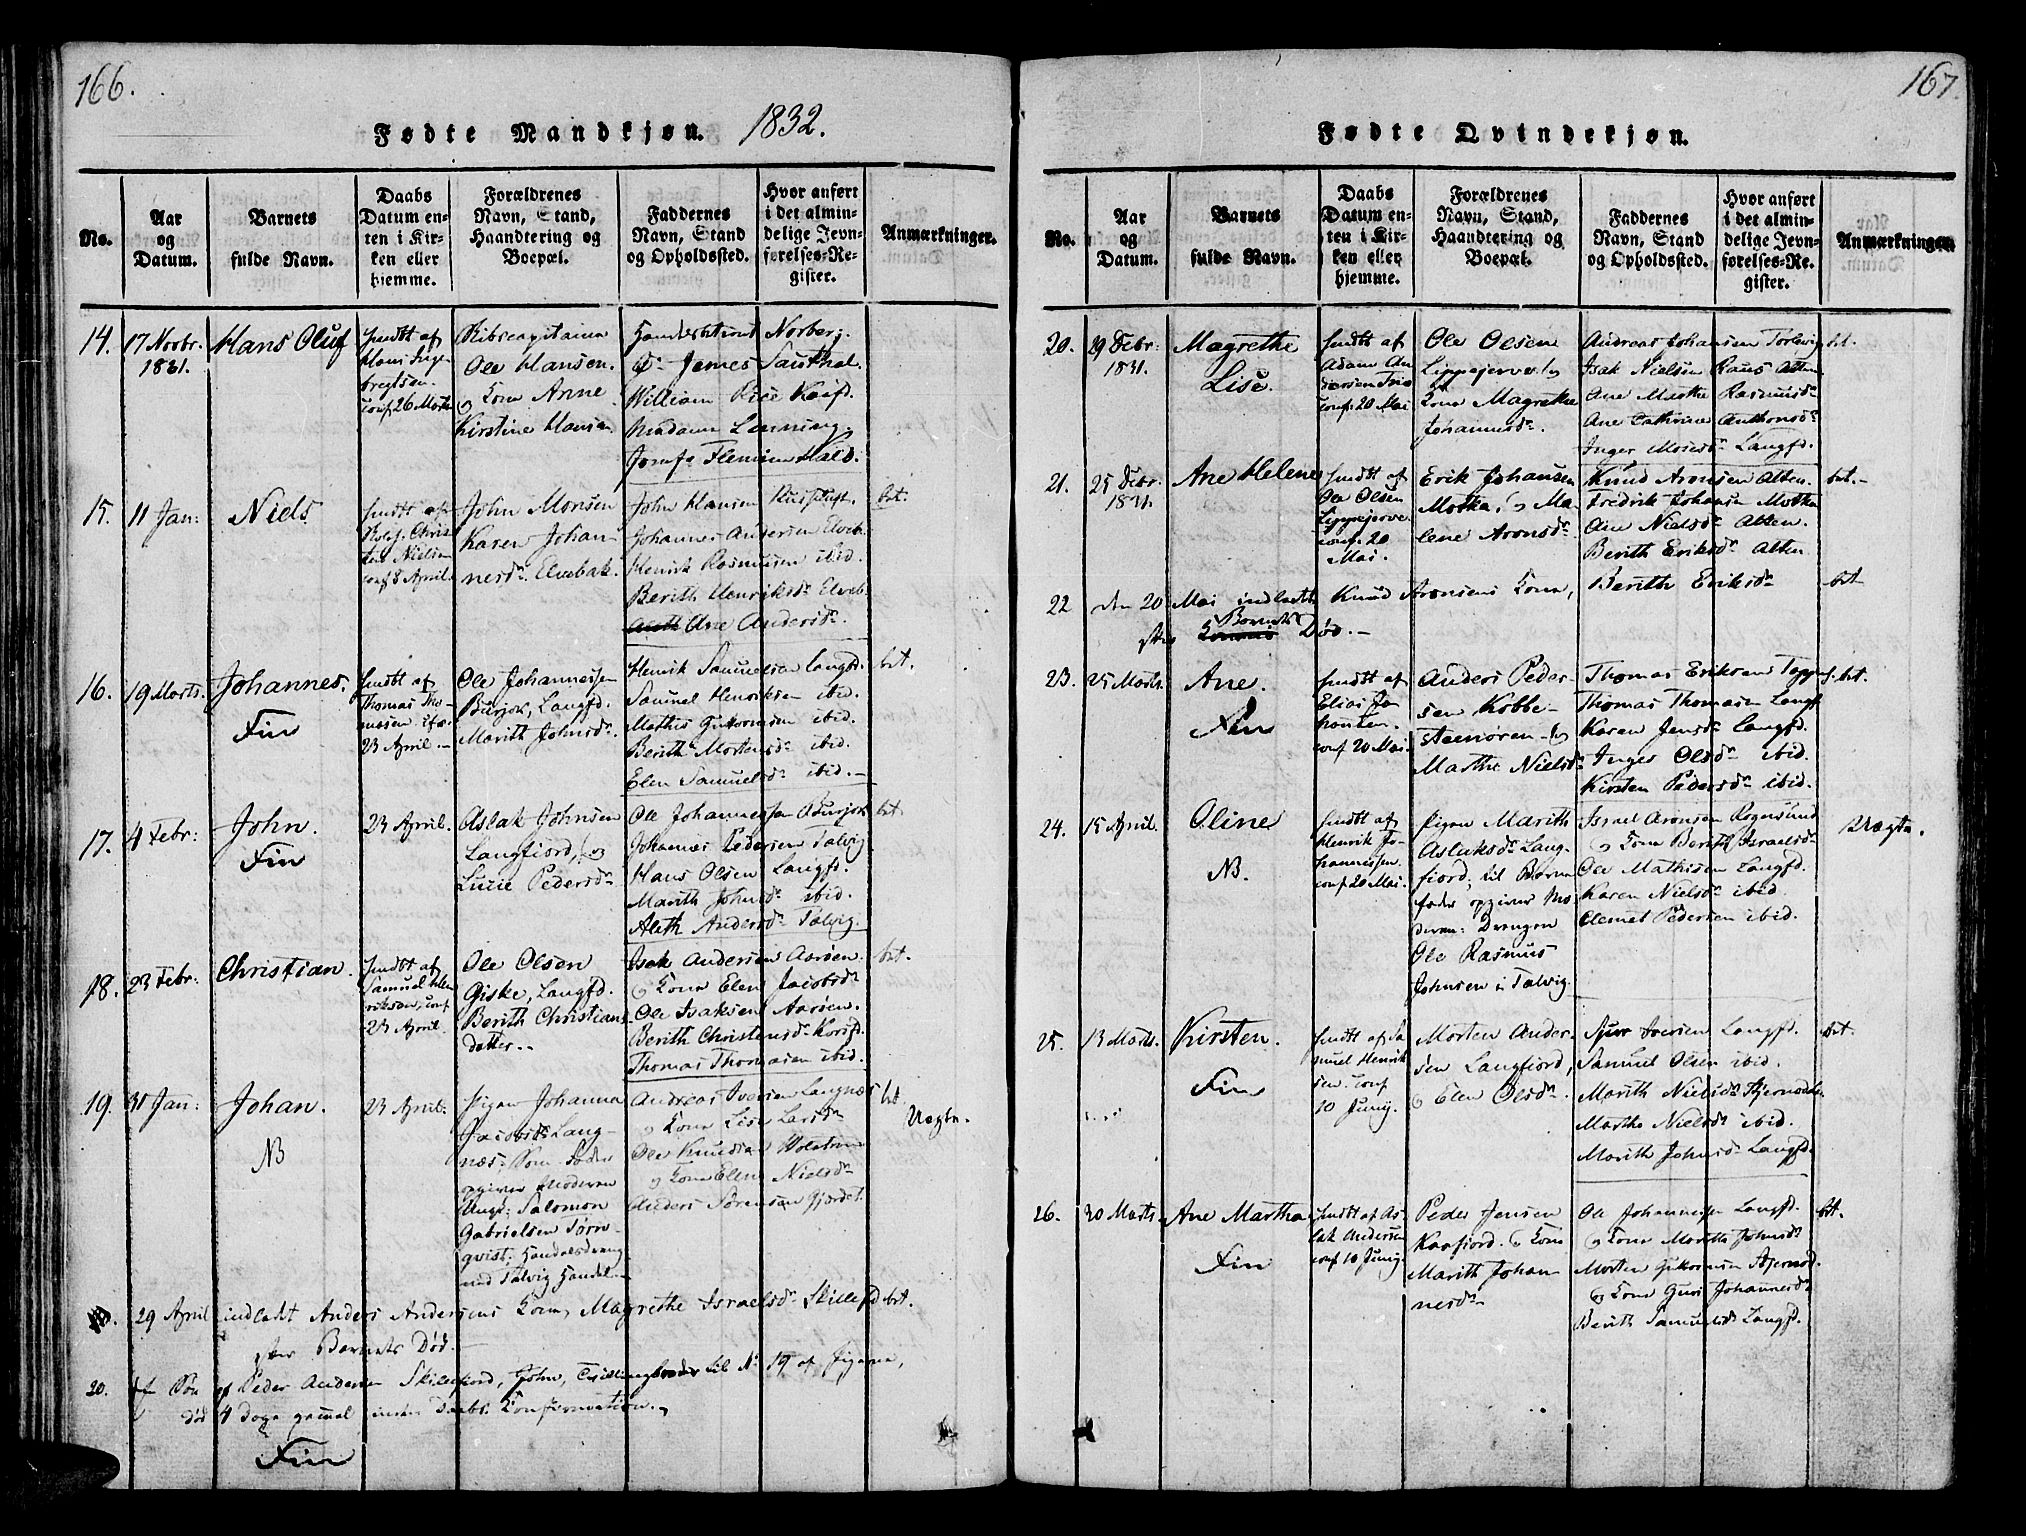 166.
Fødte Mandkjøn. 1832.
No.
Aar
og
Datum.
Barnets
fulde Navn.
Daabs
Datum en-
ten i Kir-
ken eller
hjemme.
Forældrenes
Navn, Stand,
Haandtering og
Boepæl.
Faddernes
Navn, Stand
og Opholdssted.
Hvor anført
i det almin-
delige Jevn-
førelses-Re-
gister.
Anmærkninger.
14.
17 Novbr.
1831.
Hans Oluf
hmdt af
Hans Inge-
bregtsen.
conf. 26 Marts
Ole Hansen.
og Kona Anne
Kirstine Hansen
James
William Rice
Madam Lenning.
Jomf. Flemine Wald.
15.
11 Jan:
Niels
hmdt af
Chris-
ten Nielsen
conf 8 April.
John Monsen
Karen Johan-
nesdr. Elvebak.
John Hansen
Johannes Andersen Elveb.
Henrik Rasmussen ibid.
Berith Henriksdr. Elveb.
Ane Andersdr.
bet.
16.
19 Marts.
Johannes.
Fin
hmdt af
Thomas Tho-
mesen
23 April.
Ole Johannessen
Burjok, Langfd.
Marith Johnsdr.
Henrik Samuelsen Langfd.
Samuel Henriksen ibid.
Mathis Gukormsen ibid.
Berith Mortensdr. ibid.
Elen Samuelsdr. ibid.
bet.
17.
4 Febr:
John.
Fin
23 April.
Aslak Johnsen
Langfiord, og
Lucie Pedersdr.
Ole Johannessen Burjok
Johannes Pedersen Talvig
Hans Olsen Langfd.
Marith Johnsdr. ibid
Aleth Andersdr. Talvig.
bet.
18.
23 Febr:
Christian.
hmdt af
Samuel Hen-
riksen, conf
23 April.
Ole Olsen
Giske, Langfd.
Berith Christians-
datter.
Isak Andersen Aarøen.
og Kona Elen Jacobsdr.
Ole Isaksen Aarøen.
Berith Christensdr. Korsfd.
Thomas Thomasen ibid.
bet.
19.
31 Jan:
Johan.
NB
23 April.
Pigen Johanna
Jacobsdr. Lang-
næs. Som Fader
opgiver Moderen
Ungk: Salomon
Gabrielsen Törn-
qvist, Handelsdreng
ved Talvig Handel.
Andreas Iversen Langnæs
og Kona Lise Larsdr.
Ole Knudsen
og Kona Elen Nielsdr.
Anders Sørensen Gjerdet.
bet.
Uægte.
29 April indledt Anders Andersens Kone, Magrethe Israelsdr. Skillefd bet.
efter Barnets Død.
20.
Søn af Peder Andersen Skillefiord, John, Tvillingbroder til No. 19 af Pigerne,
død 4 Dage gammel uden Daabs Confirmation.
Fin
167.
Fødte Qvindekjøn.
No.
Aar
og
Datum.
Barnets
fulde Navn.
Daabs
Datum en-
ten i Kir-
ken eller
hjemme.
Forældrenes
Navn, Stand,
Haandtering og
Boepæl.
Faddernes
Navn, Stand
og Opholdssted.
Hvor anført
i det almin-
delige Jevn-
førelses-Re-
gister.
Anmærkninger.
20.
29 Debr:
1831.
Magrethe
Lise.
hmdt af
Adam An-
dersen
conf. 20 Mai
Ole Olsen
Lippejerve og
Kona Magrethe
Johannesdr.
Andreas Johansen
Isak Nielsen
Ane Marthe Rasmusdr.
Ane Cathrine Anthonsdr.
Inger Monsdr. Langfd.
bet.
21.
25 Debr.
1831.
Ane Helene
hmdt af
Ole Olsen
Lippejerve
conf. 20
Mai.
Erik Johansen
Motka, og Ma-
lene Aronsdr.
Knud Aronsen Alten.
Fredrik Johansen Motka
Ane Nielsdr. Alten.
Berith Eriksdr. Alten
bet.
22
den 20 Mai indledt Knud Aronsens Kone, Berith Eriksdr. bet
efter Barnets Død.
23.
25 Marts.
Ane.
Fin
hmdt af
Elias Jo-
hansen.
conf 20 Mai.
Anders Peder-
sen Kobbe-
Marthe Nielsdr.
Thomas Eriksen
Thomas Thomasen Langf.
Karen Jensdr. Langfd.
Inger Olsdr. ibid.
Kirsten Pedersdr. ibid.
bet.
24.
15 April.
Oline
NB.
hmdt af
Henrik Jo-
hannessen.
conf 20 Mai.
Pigen Marith
Aslaksdr. Lang-
fiord; til Barne-
fader opgiver Mo-
deren: Drengen
Ole Rasmus
Johnsen i Talvig.
Israel Aronsen Rognsund
og Kona Berith Israelsdr.
Ole Mathisen Langfd.
Karen Nielsdr. ibid.
Clemet Pedersen ibid.
Uægte.
25.
13 Marts.
Kirsten.
Fin
hmdt af Sa-
muel Henrik-
sen. conf
10 Junij.
Morten Ander-
sen Langfiord,
og Elen Olsdr.
Sjur Iversen Langfd.
Samuel Olsen ibid.
Marith Nielsdr.
Marthe Nielsdr. ibid.
Marith Johnsdr. Langfd.
bet.
26.
20 Marts.
Ane Martha
Fin
hmdt af As-
lak Andersen
conf 10 Junij.
Peder Jensen
Kaafiord. og Kone
Marith Johan-
nesdr.
Ole Johannessen Langfd.
og Kona Marith Johnsdr.
Morten Gukormsen
og Kona Guri Johannesdr.
Berith Samuelsdr. Langfd.
bet.